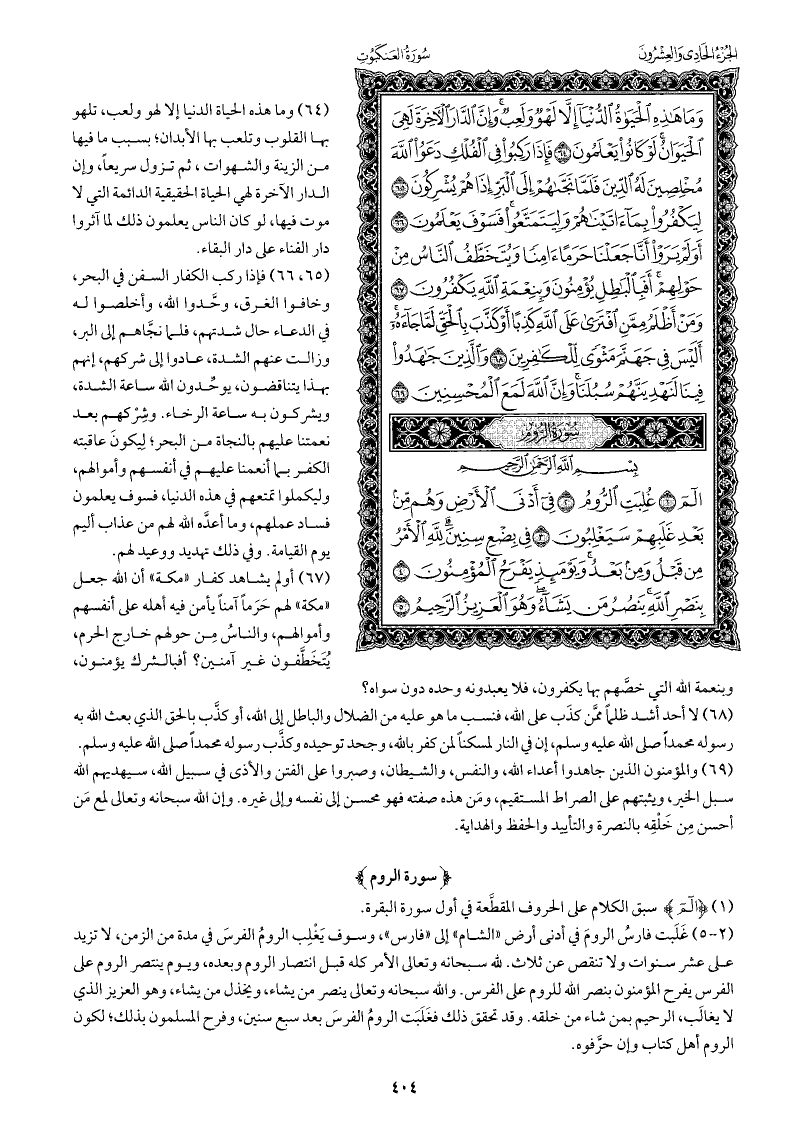 الجزء الحادى والعشرون
سورة العنكبوت
وَمَا هَٰذِهِ الْحَيَوٰةُ الدُّنْيَآ إِلَّا لَهْوٌ وَلَعِبٌ ۚ وَإِنَّ الدَّارَ الْآخِرَةَ لَهِيَ
الْحَيَوَانُ ۚ لَوْ كَانُوا يَعْلَمُونَ ٦٤ فَإِذَا رَكِبُوا فِي الْفُلْكِ دَعَوُا اللَّهَ
مُخْلِصِينَ لَهُ الدِّينَ فَلَمَّا نَجَّىٰهُمْ إِلَى الْبَرِّ إِذَا هُمْ يُشْرِكُونَ ٦٥
لِيَكْفُرُوا بِمَآ ءَاتَيْنَٰهُمْ وَلِيَتَمَتَّعُوا ۖ فَسَوْفَ يَعْلَمُونَ ٦٦
أَوَلَمْ يَرَوْا أَنَّا جَعَلْنَا حَرَمًا ءَامِنًا وَيُتَخَطَّفُ النَّاسُ مِنْ
حَوْلِهِمْ ۚ أَفَبِالْبَٰطِلِ يُؤْمِنُونَ وَبِنِعْمَةِ اللَّهِ يَكْفُرُونَ ٦٧
وَمَنْ أَظْلَمُ مِمَّنِ افْتَرَىٰ عَلَى اللَّهِ كَذِبًا أَوْ كَذَّبَ بِالْحَقِّ لَمَّا جَآءَهُۥٓ ۚ
أَلَيْسَ فِي جَهَنَّمَ مَثْوًى لِّلْكَٰفِرِينَ ٦٨ وَالَّذِينَ جَٰهَدُوا
فِينَا لَنَهْدِيَنَّهُمْ سُبُلَنَا ۚ وَإِنَّ اللَّهَ لَمَعَ الْمُحْسِنِينَ ٦٩
سورة الروم
بِسْمِ اللَّهِ الرَّحْمَٰنِ الرَّحِيمِ
الٓمٓ ١ غُلِبَتِ الرُّومُ ٢ فِيٓ أَدْنَى الْأَرْضِ وَهُم مِّنۢ
بَعْدِ غَلَبِهِمْ سَيَغْلِبُونَ ٣ فِي بِضْعِ سِنِينَ ۗ لِلَّهِ الْأَمْرُ
مِن قَبْلُ وَمِنۢ بَعْدُ ۚ وَيَوْمَئِذٍ يَفْرَحُ الْمُؤْمِنُونَ ٤
بِنَصْرِ اللَّهِ ۚ يَنصُرُ مَن يَشَآءُ ۖ وَهُوَ الْعَزِيزُ الرَّحِيمُ ٥
(٦٤) وما هذه الحياة الدنيا إلا لهو ولعب، تلهو
بها القلوب وتلعب بها الأبدان؛ بسبب ما فيها
من الزينة والشهوات، ثم تزول سريعاً، وإن
الدار الآخرة لهي الحياة الحقيقية الدائمة التي لا
موت فيها، لو كان الناس يعلمون ذلك لما آثروا
دار الفناء على دار البقاء.
(٦٥، ٦٦) فإذا ركب الكفار السفن في البحر،
وخافوا الغرق، وحَّدوا الله، وأخلصوا له
في الدعاء حال شدتهم، فلما نجَّاهم إلى البر،
وزالت عنهم الشدة، عادوا إلى شركهم، إنهم
بهذا يتناقضون، يوحِّدون الله ساعة الشدة،
ويشركون به ساعة الرخاء. وشِرْكهم بعد
نعمتنا عليهم بالنجاة من البحر؛ ليكونَ عاقبته
الكفر بما أنعمنا عليهم في أنفسهم وأموالهم،
وليكملوا تمتعهم في هذه الدنيا، فسوف يعلمون
فساد عملهم، وما أعدَّه الله لهم من عذاب أليم
يوم القيامة. وفي ذلك تهديد ووعيد لهم.
(٦٧) أولم يشاهد كفار «مكة» أن الله جعل
«مكة» لهم حَرَماً آمناً يأمن فيه أهله على أنفسهم
وأموالهم، والناسُ مِن حولهم خارج الحرم،
يُتَخَطَّفون غير آمنين؟ أفبالشرك يؤمنون،
وبنعمة الله التي خصَّهم بها يكفرون، فلا يعبدونه وحده دون سواه؟
(٦٨) لا أحد أشد ظلماً ممَّن كذَب على الله، فنسب ما هو عليه من الضلال والباطل إلى الله، أو كذَّب بالحق الذي بعث الله به
رسوله محمداً صلى الله عليه وسلم، إن في النار لمسكناً لمن كفر بالله، وجحد توحيده وكذَّب رسوله محمداً صلى الله عليه وسلم.
(٦٩) والمؤمنون الذين جاهدوا أعداء الله، والنفس، والشيطان، وصبروا على الفتن والأذى في سبيل الله، سيهديهم الله
سبل الخير، ويثبتهم على الصراط المستقيم، ومَن هذه صفته فهو محسن إلى نفسه وإلى غيره. وإن الله سبحانه وتعالى لمع مَن
أحسن مِن خَلْقِه بالنصرة والتأييد والحفظ والهداية.
﴿ سورة الروم ﴾
(١) ﴿الٓمٓ﴾ سبق الكلام على الحروف المقطَّعة في أول سورة البقرة.
(٢-٥) غَلَبت فارسُ الرومَ في أدنى أرض «الشام» إلى «فارس»، وسوف يَغْلِب الرومُ الفرسَ في مدة من الزمن، لا تزيد
على عشر سنوات ولا تنقص عن ثلاث. لله سبحانه وتعالى الأمر كله قبل انتصار الروم وبعده، ويوم ينتصر الروم على
الفرس يفرح المؤمنون بنصر الله للروم على الفرس. والله سبحانه وتعالى ينصر من يشاء، ويخذل من يشاء، وهو العزيز الذي
لا يغالَب، الرحيم بمن شاء من خلقه. وقد تحقق ذلك فغَلَبَت الرومُ الفرسَ بعد سبع سنين، وفرح المسلمون بذلك؛ لكون
الروم أهل كتاب وإن حرَّفوه.
٤٠٤